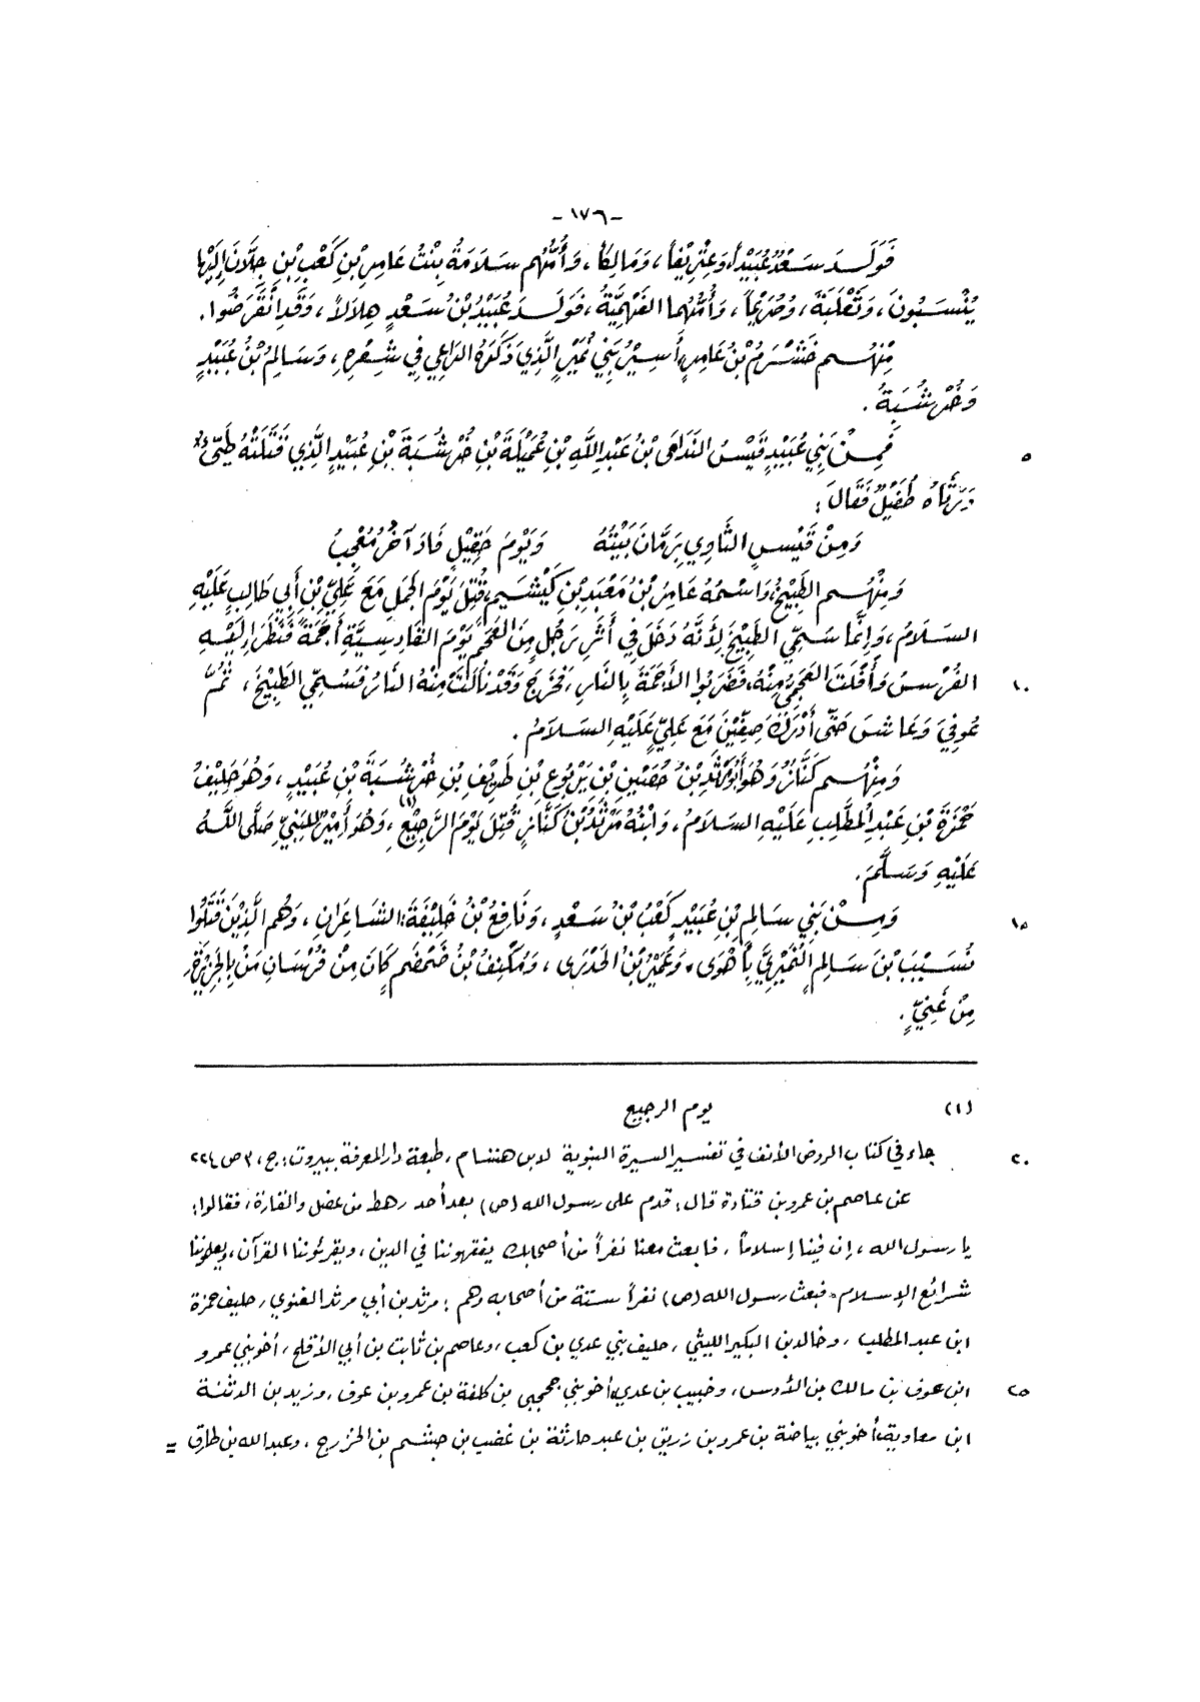 -١٧٦-
فَوَلَدَ سَعْدٌ عُبَيْداً، وَعِتْرِيْفاً، وَمَالِكاً، وَأُمُّهُم سَلَامَةُ بِنْتُ عَامِرِ بْنِ كَعْبِ بْنِ جِلَّانَ إِلَيْهَا
يُنْسَبُونَ، وَثَعْلَبَةَ، وَصُرَيْماً، وَأُمُّهُما الفَهْمِيَّةُ، فَوَلَدَ عُبَيْدُ بْنُ سَعْدٍ هِلَالاً، وَقَدِ انْقَرَضُوا.
مِنْهُم خَشْرَمُ بْنُ عَامِرٍ، أَسِيْرُ بَنِي نُمَيْرٍ الَّذِي ذَكَرَهُ الرَاعِي فِي شِعْرِهِ، وَسَالِمُ بْنُ عُبَيْدٍ
وَخُرْشُبَةُ.
فَمِنْ بَنِي عُبَيْدٍ قَيْسُ النَدَامَى بْنُ عَبْدِ اللَّهِ بْنِ عُمَيْلَةَ بْنِ خُرْشُبَةَ بْنِ عُبَيْدٍ الَّذِي قَتَلَتْهُ طَيِّءٌ ٥
وَرَثَاهُ طُفَيْلٌ فَقَالَ:
وَمِنْ قَيْسٍ الثَّاوِي بِرَمَّانَ بَيْتُهُ وَيَوْمَ حَقِيْلٍ فَادَ آخَرُ مُعْجِبُ
وَمِنْهُم الطَبِيْخُ، وَاسْمُهُ عَامِرُ بْنُ مَعْبَدِ بْنِ كَيْشَمٍ، قُتِلَ يَوْمَ الجَمَلِ مَعَ عَلِيِّ بْنِ أَبِي طَالِبٍ عَلَيْهِ
السَلَامُ، وَإِنَّمَا سُمِّيَ الطَبِيْخَ لِأَنَّهُ دَخَلَ فِي أَثَرِ رَجُلٍ مِنَ العَجَمِ يَوْمَ القَادِسِيَّةِ أَجَمَةً فَنَظَرَ إِلَيْهِ
الفُرْسُ وَأَفْلَتَ العَجَمِيُّ مِنْهُ، فَضَرَبُوا الأَجَمَةَ بِالنَارِ، فَخَرَجَ وَقَدْ نَالَتْ مِنْهُ النَارُ فَسُمِّيَ الطَبِيْخَ، ثُمَّ ١٠
عُوفِيَ وَعَاشَ حَتَّى أَدْرَكَ صِفِّيْنَ مَعَ عَلِيٍّ عَلَيْهِ السَلَامُ.
وَمِنْهُم كَنَّازٌ وَهُوَ أَبُو مَرْثَدِ بْنُ حُصَيْنِ بْنِ يَرْبُوعِ بْنِ طَرِيْفِ بْنِ خُرْشُبَةَ بْنِ عُبَيْدٍ، وَهُوَ حَلِيْفُ
حَمْزَةَ بْنِ عَبْدِ المُطَّلِبِ عَلَيْهِ السَلَامُ، وَابْنُهُ مَرْثَدُ بْنُ كَنَّازٍ قُتِلَ يَوْمَ الرَّجِيْعِ (١)، وَهُوَ أَمِيْرٌ لِلنَّبِيِّ صَلَّى اللَّهُ
عَلَيْهِ وَسَلَّمَ.
وَمِنْ بَنِي سَالِمِ بْنِ عُبَيْدٍ كَعْبُ بْنُ سَعْدٍ، وَنَافِعُ بْنُ خَلِيْفَةَ: الشَاعِرَانِ، وَهُم الَّذِيْنَ قَتَلُوا ١٥
نُسَيْبَ بْنَ سَالِمٍ النُمَيْرِيَّ بِأَهْوَى، وَعُمَيْرُ بْنُ الحَدْرَى، وَمُكْنِفُ بْنُ ضَمْضَمٍ كَانَ مِنْ فُرْسَانِ مَنْ بِالجَزِيْرَةِ،
مِنْ غَنِيٍّ.
(١) يوم الرجيع
جاء في كتاب الروض الأنف في تفسير السيرة النبوية لابن هشام، طبعة دار المعرفة ببيروت: ج، ٣ ص ٢٢٤ ٢٠
عن عاصم بن عمرو بن قتادة قال: قدم على رسول الله (ص) بعد أحد رهط من عضل والقارة، فقالوا:
يا رسول الله، إن فينا إسلاماً، فابعث معنا نفراً من أصحابك يفقهوننا في الدين، ويقرئوننا القرآن، ويعلموننا
شرائع الإسلام، فبعث رسول الله (ص) نفراً ستة من أصحابه وهم: مرثد بن أبي مرثد الغنوي، حليف حمزة
ابن عبد المطلب، وخالد بن البكير الليثي، حليف بني عدي بن كعب، وعاصم بن ثابت بن أبي الأقلح، أخو بني عمرو
ابن عوف بن مالك بن الأوس، وخبيب بن عدي، أخو بني جحجبى بن كلفة بن عمرو بن عوف، وزيد بن الدثنة ٢٥
ابن معاوية، أخو بني بياضة بن عمرو بن زريق بن عبد حارثة بن غضب بن جشم بن الخزرج، وعبد الله بن طارق =